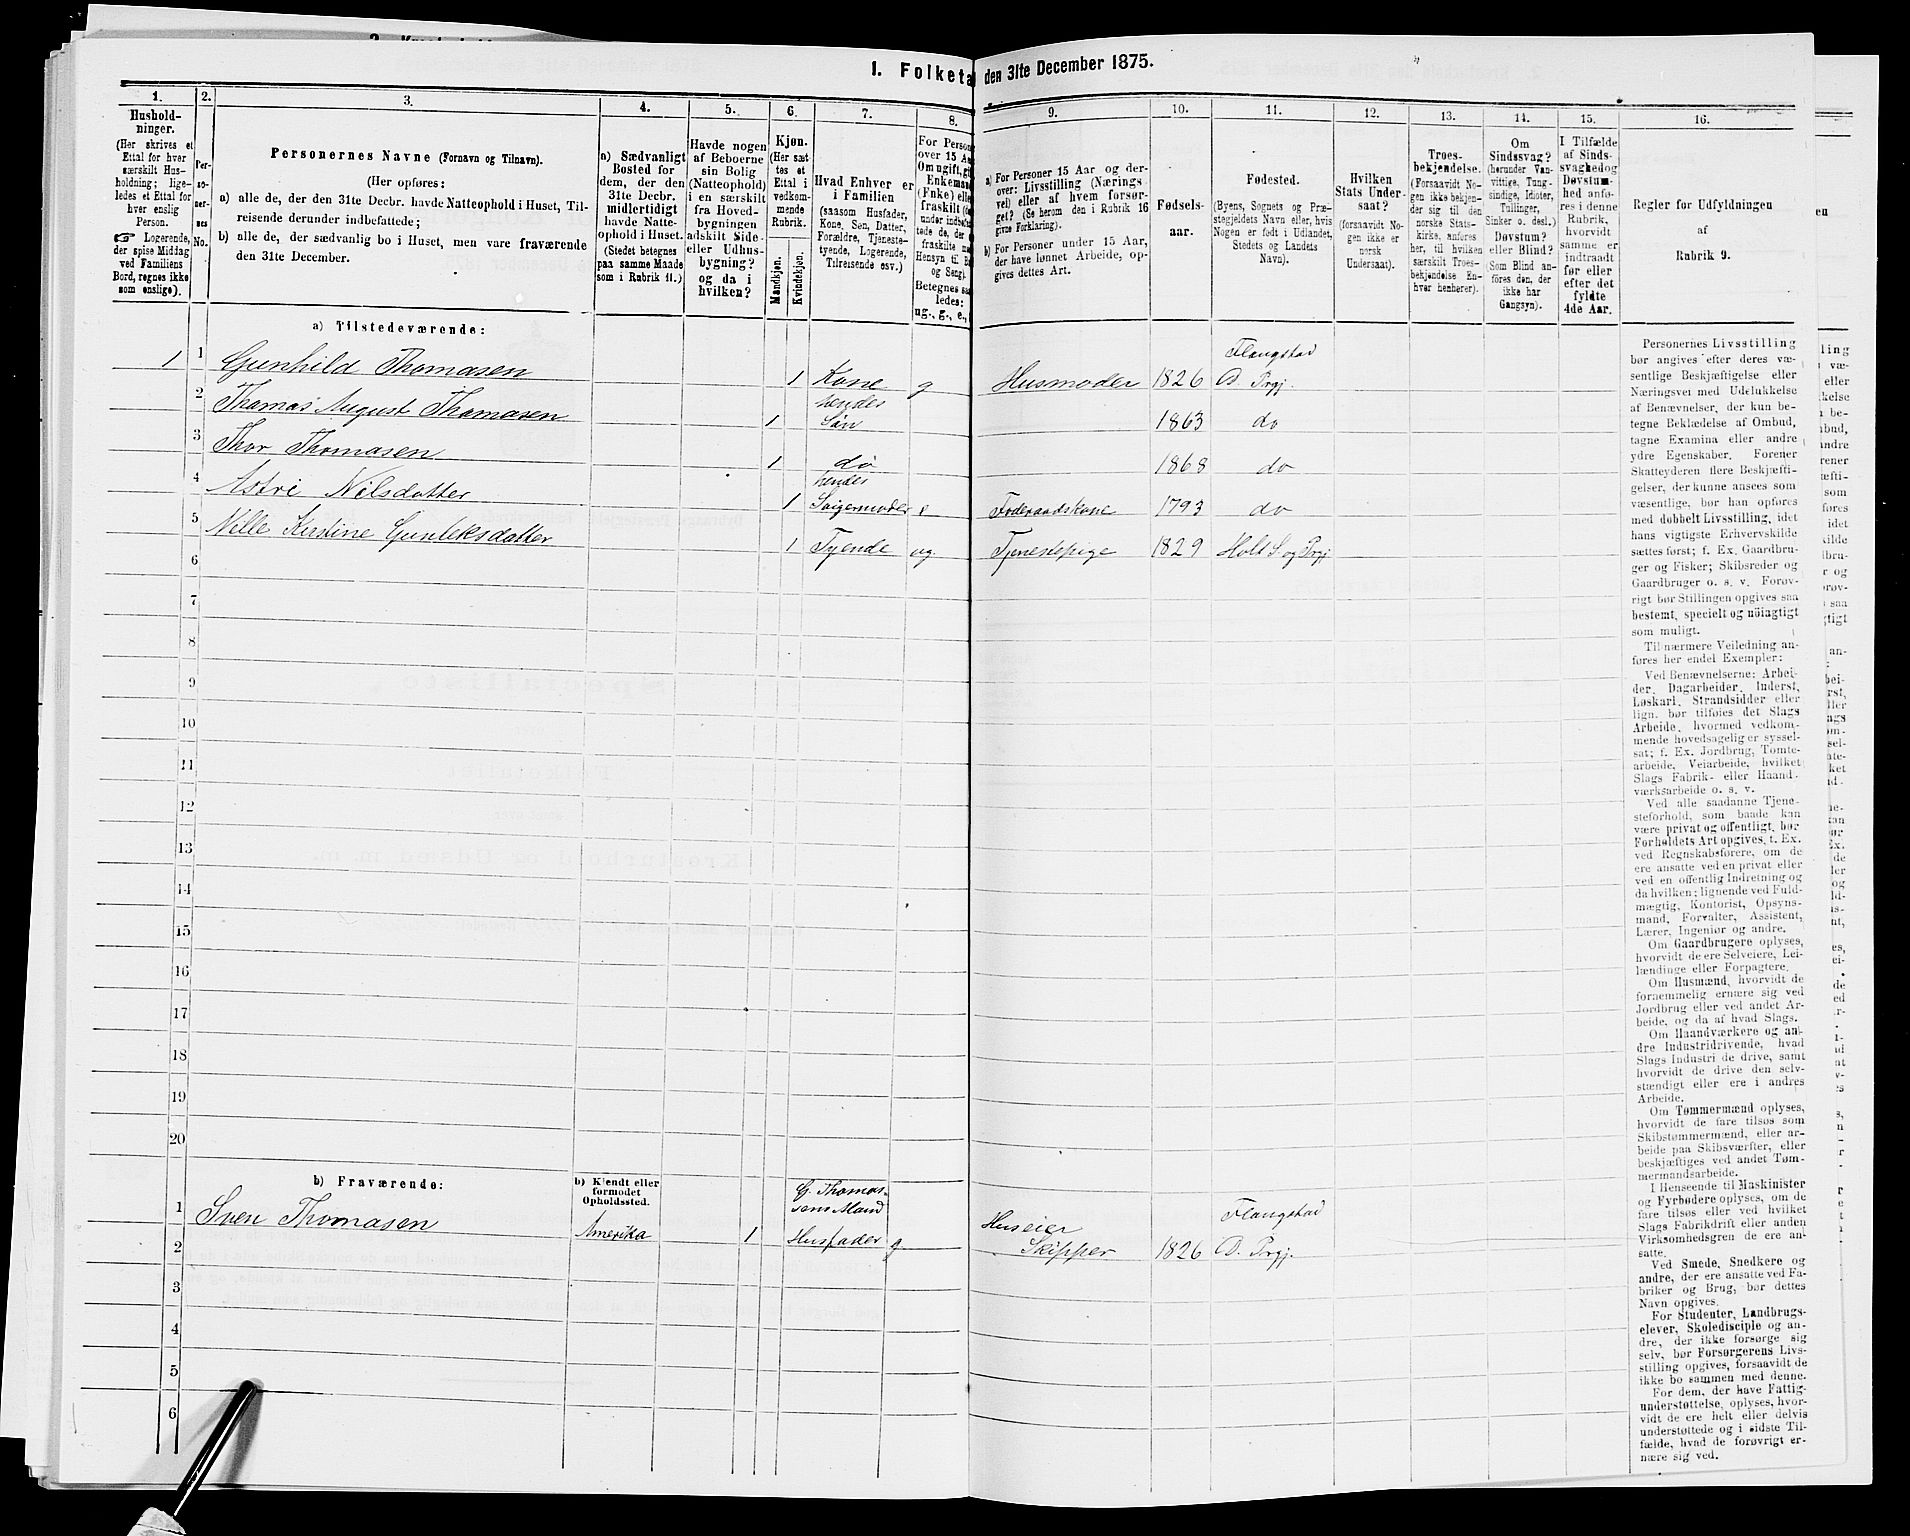 1. Folketal den 31te December 1875.
1.
Hushold-
ninger.
(Her skrives et
Ettal for hver
særskilt Hus-
holdning; lige-
ledes et Ettal for
hver enslig
Person.
☞ Logerende,
der spise Middag
ved Familiens
Bord, regnes ikke
som enslige).
2.
Per-
so-
ner-
nes
No.
3.
Personernes Navne (Fornavn og Tilnavn).
(Her opføres:
a) alle de, der den 31te Decbr. havde Natteophold i Huset, Til-
reisende derunder indbefattede;
b) alle de, der sædvanlig bo i Huset, men vare fraværende
den 31te December.
4.
a) Sædvanligt
Bosted for
dem, der den
31te Decbr.
midlertidigt
havde Natte-
ophold i Huset.
(Stedet betegnes
paa samme Maade
som i Rubrik 11.)
5.
Havde nogen
af Beboerne
sin Bolig
(Natteophold)
i en særskilt
fra Hoved-
bygningen
adskilt Side-
eller Udhus-
bygning?
og da i
hvilken?
6.
Kjøn.
(Her sæt
tes et
Ettal i
vedkom-
mende
Rubrik.
Mandkjøn.
Kvindekjøn.
7.
Hvad Enhver er
i Familien
(saasom Husfader,
Kone, Søn, Datter,
Forældre, Tjeneste-
tyende, Logerende,
Tilreisende osv.)
8.
For Person
over 15 Aa
Om ugift, g
Enkema
(Enke) elle
fraskilt
under indbe
tede de,
fraskilte
Hensyn til B
og Seng).
Betegnes saa
ledes:
ug., g., e.,
9.
a) For Personer 15 Aar og der-
over: Livsstilling (Nærings
vei) eller af hvem forsør-
get? (Se herom den i Rubrik 16
givne Forklaring).
b) For Personer under 15 Aar,
der have lønnet Arbeide, op-
gives dettes Art.
10.
Fødsels-
aar.
11.
Fødested.
(Byens, Sognets og Præ-
stegjeldets Navn eller, hvis
Nogen er født i Udlandet,
Stedets og Landets
Navn).
12.
Hvilken
Stats Under-
saat?
(forsaavidt No-
gen ikke er
norsk
Undersaat).
13.
Troes-
bekjendelse.
(Forsaavidt No-
gen ikke bekjen-
der sig til den
norske Stats-
kirke, anføres
her, til hvilken
særskilt Troes-
bekjendelse En-
hver henhører).
14.
Om
Sindssvag?
(herunder Van-
vittige, Tung-
sindige, Idioter,
Tullinger,
Sinker o. desl.)
Døvstum?
eller Blind?
(Som Blind an-
føres den, der
ikke har
Gangsyn).
15.
I Tilfælde
af Sinds-
svaghed og
Døvstum-
hed anfø-
res i denne
Rubrik,
hvorvidt
samme er
indtraadt
før eller
efter det
fyldte
4de Aar.
16.
Regler for Udfyldningen
af
Rubrik 9.
a) Tilstedeværende:
1 1 Gunhild Thomasen 1 Kone g Husmoder 1826 Flangstad
D. Prgj.
2 Thomas August Thomasen 1 hendes
Søn 1863 do
3 Thor Thomasen 1 do 1868 do
4 Astri Nilsdatter 1 hendes
Svigermoder e Foderaadskone 1793 do
5 Nille Kirstine Gunleksdatter 1 Tyende ug Tjenestepige 1829 Holt S og Prgj
6
7
8
9
10
11
12
13
14
15
16
17
18
19
20
b) Fraværende:
b) Kjendt eller
formodet
Opholdssted.
1 Sven Thomasen Amerika 1 G. Thomas-
sens Mand
Husfader g Huseier
Skipper 1826 Flangstad
D. Prgj.
2
3
4
5
6
Personernes Livsstilling
bør angives efter deres væ-
sentlige Beskjæftigelse eller
Næringsvei med Udelukkelse
af Benævnelser, der kun be-
tegne Beklædelse af Ombud,
tagne Examina eller andre
ydre Egenskaber. Forener
Skatteyderen flere Beskjæfti-
gelser, der kunne ansees som
væsentlige, bør han opføres
med dobbelt Livsstilling, idet
hans vigtigste Erhvervskilde
sættes først; f. Ex. Gaardbru-
ger og Fisker; Skibsreder og
Gaardbruger o. s. v. Forøv-
rigt bør Stillingen opgives saa
bestemt, specielt og nöiagtigt
som muligt.
Til nærmere Veiledning an-
føres her endel Exempler:
Ved Benævnelserne: Arbei-
der, Dagarbeider, Inderst,
Løskari, Strandsidder eller
lign. bør tilføies det Slags
Arbeide, hvormed vedkom-
mende hovedsagelig er syssel-
sat; f. Ex. Jordbrug, Tomte-
arbeide, Veiarbeide, hvilket
Slags Fabrik- eller Haand-
værksarbeide o. s. v.
Ved alle saadanne Tjene-
steforhold, som baade kan
være privat og offentligt, bør
Forholdets Art opgives, t. Ex.
ved Regnskabsførere, om de
ere ansatte ved en privat eller
ved en offentlig Indretning og
da hvilken; lignende ved Fuld-
mægtig, Kontorist, Opsyns-
mand, Forvalter, Assistent,
Lærer, Ingeniør og andre.
Om Gaardbrugere oplyses,
hvorvidt de ere Selveiere, Lei-
lændinge eller Forpagtere.
Om Husmænd, hvorvidt de
fornemmelig ernære sig ved
Jordbrug eller ved andet Ar-
beide, og da af hvad Slags.
Om Haandværkere og an-
dre Industridrivende, hvad
Slags Industri de drive, samt
hvorvidt de drive den selv-
stændigt eller ere i andres
Arbeide.
Om Tømmermænd oplyses,
hvorvidt de fare tilsøs som
Skibstømmermænd, eller ar-
beide paa Skibsværfter, eller
beskjæftiges ved andet Tøm-
mermandsarbeide.
I Henseende til Maskinister
og Fyrbødere oplyses, om de
fare tilsøs eller ved hvilket
Slags Fabrikdrift eller anden
Virksomhedsgren de ere an-
satte.
Ved Smede, Snedkere og
andre, der ere ansatte ved Fa-
briker og Brug, bør dettes
Navn opgives.
For Studenter, Landbrugs-
elever, Skoledisciple og an-
dre, der ikke forsørge sig
selv, bør Forsørgerens Livs-
stilling opgives, forsaavidt de
ikke bo sammen med denne.
For dem, der have Fattig-
understøttelse, oplyses, hvor-
vidt de ere helt eller delvis
understøttede og i sidste Til-
fælde, hvad de forøvrigt er-
nære sig ved.